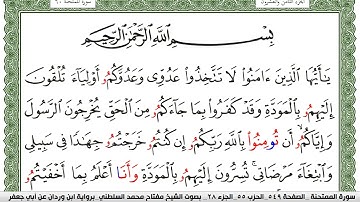 الجزء الثامن والعشرون سورة الممتحنة ٦٠
بِسْمِ اللَّهِ الرَّحْمَٰنِ الرَّحِيمِ
يَٰأَيُّهَا الَّذِينَ ءَامَنُوا لَا تَتَّخِذُوا عَدُوِّي وَعَدُوَّكُمُ أَوْلِيَاءَ تُلْقُونَ
إِلَيْهِمُ بِالْمَوَدَّةِ وَقَدْ كَفَرُوا بِمَا جَاءَكُمُ مِنَ الْحَقِّ يُخْرِجُونَ الرَّسُولَ
وَإِيَّاكُمُ أَن تُومِنُوا بِاللَّهِ رَبِّكُمُ إِن كُنتُمُ خَرَجْتُمُ جِهَٰدًا فِي سَبِيلِي
وَابْتِغَاءَ مَرْضَاتِي تُسِرُّونَ إِلَيْهِمُ بِالْمَوَدَّةِ وَأَنَا أَعْلَمُ بِمَا أَخْفَيْتُمُ
سورة الممتحنة _ الصفحة ٥٤٩ _ الحزب ٥٥ _ الجزء ٢٨ _ بصوت الشيخ مفتاح محمد السلطني _ برواية ابن وردان عن أبي جعفر